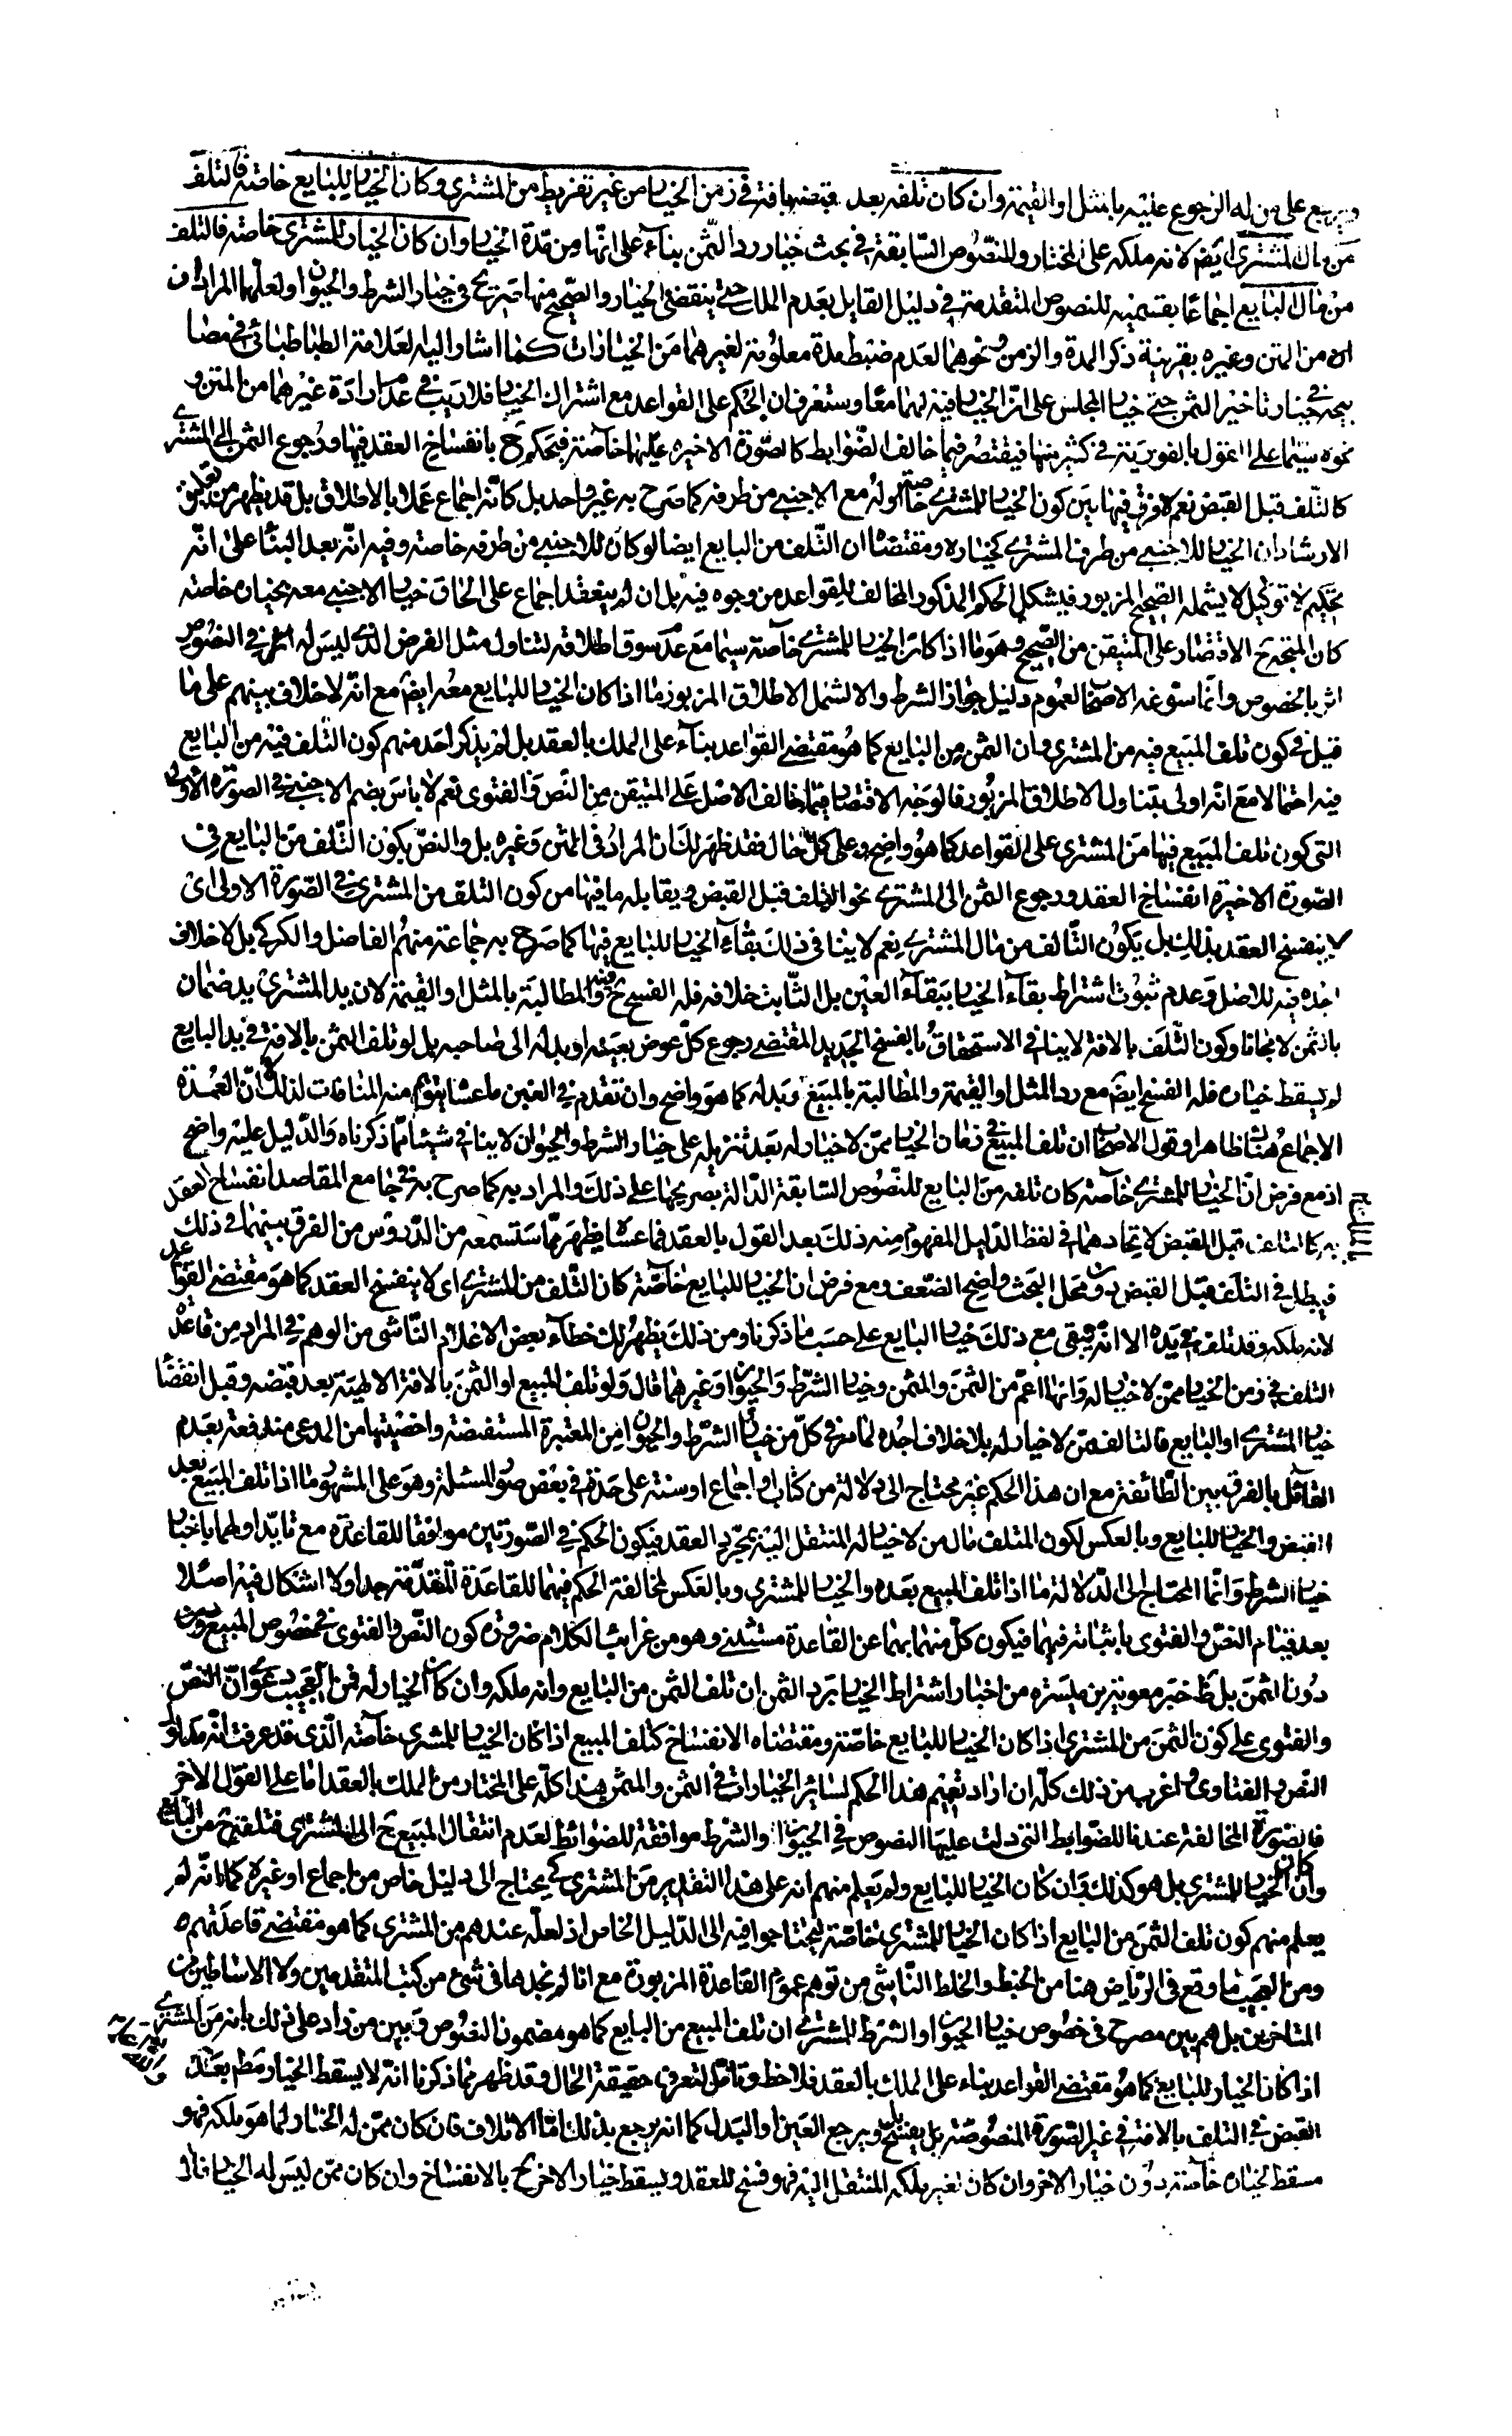 ويرجع على من له الرجوع عليه بالمثل او القيمة وان كان تلفه بعد قبضه بافة في زمن الخيار من غير تفريط من المشتري وكان الخيار للبايع خاصة فالتلف
من مال المشتري ايض لانه ملكه على المختار وللنصوص السابقة في بحث خيار رد الثمن بناء على انها من مدة الخيار وان كان الخيار للمشتري خاصة فالتلف
من مال البايع اجماعا بقسميه للنصوص المتقدمة في دليل القايل بعدم الملك حتى ينقضي الخيار والصحيح منها صريح في خيار الشرط والحيوان ولعلهما المراد
من المتن وغيره بقرينة ذكر المدة والزمن ونحوهما لعدم ضبط مدة معلومة لغيرهما من الخيارات كما اشار اليه العلامة الطباطبائي في مصا
بيحه في خيار تاخير الثمن حتى خيار المجلس على ان الخيار فيه لهما معا وستعرف ان الحكم على القواعد مع اشتراك الخيار فلا ريب في عدم ارادة غيرهما من المتن و
نحوه سيما على القول بالفورية في كثير منها فيقتصر فيما خالف الضوابط كالصورة الاخيرة عليهما خاصة فيحكم ح بانفساخ العقد فيها ورجوع الثمن الى المشتري
كالتلف قبل القبض نعم لا فرق فيها بين كون الخيار للمشتري خاصة او له مع الاجنبي من طرفه كما صرح به غير واحد بل كانه اجماع عملا بالاطلاق بل قد يظهر من تعليق
الارشاد ان الخيار للاجنبي من طرف المشتري كخياره ومقتضاه ان التلف من البايع ايضا لو كان للاجنبي من طرفه خاصة وفيه انه بعد البناء على انه
تحكيم لا توكيل لا يشمله الصحيح المزبور فيشكل الحكم المذكور المخالف للقواعد من وجوه فيه بل ان لم ينعقد اجماع على الحاق خيار الاجنبي معه بخياره خاصة
كان المتجه ح الاقتصار على المتيقن من الصحيح وهو ما اذا كان الخيار للمشتري خاصة سيما مع عدم سوق اطلاقه لتناول مثل الفرض الذي ليس له في النصوص
اثر بالخصوص وانما سوغه الاصحاب لعموم دليل جواز الشرط والا لشمل الاطلاق المزبور ما اذا كان الخيار للبايع معه ايضا مع انه لا خلاف بينهم على ما
قيل في كون تلف المبيع فيه من المشتري وان الثمن من البايع كما هو مقتضى القواعد بناء على الملك بالعقد بل لم يذكر احد منهم كون التلف فيه من البايع
فيه احتمالا مع انه اولى بتناول الاطلاق المزبور فالوجه الاقتصار فيما خالف الاصل على المتيقن من النص والفتوى نعم لا باس بضم الاجنبي في الصورة الاولى
التي كون تلف المبيع فيها من المشتري على القواعد كما هو واضح وعلى كل حال فقد ظهر لك ان المراد في المتن وغيره بل والنص بكون التلف من البايع في
الصورة الاخيرة انفساخ العقد ورجوع الثمن الى المشتري نحو التلف قبل القبض ويقابله ما فيها من كون التلف من المشتري في الصورة الاولى اى
لا ينفسخ العقد بذلك بل يكون التالف من مال المشتري نعم لا ينافي ذلك بقاء الخيار للبايع فيها كما صرح به جماعة منهم الفاضل والكركي بل لا خلاف
اجده فيه للاصل وعدم ثبوت اشتراط بقاء الخيار ببقاء العين بل الثابت خلافه فله الفسخ ح والمطالبة بالمثل او القيمة لان يد المشتري يد ضمان
بالثمن لا مجانا وكون التلف بالافة لا ينافي الاستحقاق بالفسخ الجديد المقتضى رجوع كل عوض بعينه او بدله الى صاحبه بل لو تلف الثمن بالافة في يد البايع
لم يسقط خياره فله الفسخ ايض مع رد المثل او القيمة والمطالبة بالمبيع وبدله كما هو واضح وان تقدم في الغبن ما عساه يتوهم منه المنافات لذلك لان العمدة
الاجماع هناك ظاهرا وقول الاصحاب ان تلف المبيع في زمان الخيار ممن لا خيار له بعد تنزيله على خيار الشرط والحيوان لا ينافي شيئا مما ذكرناه والدليل عليه واضح
اذ مع فرض ان الخيار للمشتري خاصة كان تلفه من البايع للنصوص السابقة الدالة بصريحها على ذلك والمراد به كما صرح به في جامع المقاصد انفساخ العقد
به كالتلف قبل القبض لاتحادهما في لفظ الدليل المفهوم منه ذلك بعد القول بالعقد فما عساه يظهر مما ستسمعه من الدروس من الفرق بينهما في ذلك
فيبطل في التلف قبل القبض دون محل البحث واضح الضعف ومع فرض ان الخيار للبايع خاصة كان التلف من المشتري اى لا ينفسخ العقد كما هو مقتضى القواعد
لانه ملكه وقد تلف في يده الا انه يبقى مع ذلك خيار البايع على حسب ما ذكرنا ومن ذلك يظهر لك خطاء بعض الاعلام الناشى من الوهم في المراد من قاعدة
التلف في زمن الخيار ممن لا خيار له وانها اعم من الثمن والمثمن وخيار الشرط والحيوان وغيرهما قال ولو تلف المبيع او الثمن بالافة الالهية بعد قبضه وقبل انقضا
خيار المشتري او البايع فالتالف ممن لا خيار له بلا خلاف اجده لما مر في كل من خيارى الشرط والحيوان من المعتبرة المستفيضة واخصيتها من المدعى مندفعة بعدم
القائل بالفرق بين الطائفة مع ان هذا الحكم غير محتاج الى دلالة من كتاب او اجماع او سنة على حدة في بعض صور المسئلة وهو على المشهور ما اذا تلف المبيع بعد
القبض والخيار للبايع وبالعكس لكون المتلف مال من لا خيار له المنتقل اليه بمجرد العقد فيكون الحكم في الصورتين موافقا للقاعدة مع تايد اولهما باخبار
خيار الشرط وانما المحتاج الى الدلالة ما اذا تلف المبيع بعده والخيار للمشتري وبالعكس لمخالفة الحكم فيهما للقاعدة المتقدمة جدا ولا اشكال فيه اصلا
بعد قيام النص والفتوى باثباته فيهما فيكون كل منهما بهما عن القاعدة مستثنى وهو من غرائب الكلام ضرورة كون النص والفتوى في خصوص المبيع دون
دون الثمن بل ظ خبر معوية بن ميسرة من اخبار اشتراط الخيار برد الثمن ان تلف الثمن من البايع وانه ملكه وان كان الخيار له فمن العجيب دعوى ان النص
والفتوى على كون الثمن من المشتري اذا كان الخيار للبايع خاصة ومقتضاه الانفساخ كتلف المبيع اذا كان الخيار للمشتري خاصة الذي قد عرفت انه مدلول
النص والفتاوى واغرب من ذلك كله ان اراد تعميم هذا الحكم لسائر الخيارات في الثمن والمثمن هذا كله على المختار من الملك بالعقد اما على القول الاخر
فالصورة المخالفة عندنا للضوابط التي دلت عليها النصوص في الحيوان والشرط موافقة للضوابط لعدم انتقال المبيع ح الى المشتري فتلفه ح من البايع
وان كان الخيار للمشتري بل هو كذلك وان كان الخيار للبايع ولم يعلم منهم انه على هذا التقدير من المشتري كي يحتاج الى دليل خاص من اجماع او غيره كما انه لم
يعلم منهم كون تلف الثمن من البايع اذا كان الخيار للمشتري خاصة ليحتاجوا فيه الى الدليل الخاص اذ لعله عندهم من المشتري كما هو مقتضى قاعدتهم
ومن العجيب ما وقع في الرياض هنا من الخبط والخلط الناشئ من توهم عموم القاعدة المزبورة مع انا لم نجدها في شئ من كتب المتقدمين ولا الاساطين من
المتاخرين بل هم بين مصرح في خصوص خيار الحيوان او الشرط للمشتري ان تلف المبيع من البايع كما هو مضمون النصوص وبين من زاد على ذلك بانه من المشتري
اذا كان الخيار للبايع كما هو مقتضى القواعد بناء على الملك بالعقد فلاحظ وتامل لتعرف حقيقة الحال وقد ظهر مما ذكرنا انه لا يسقط الخيار مطم بعد
القبض في التلف بالافة في غير الصورة المنصوصة بل يفسخ ويرجع العين او البدل كما انه يرجع بذلك اما الاتلاف فان كان ممن له الخيار لما هو ملكه فهو
مسقط لخياره خاصة دون خيار الاخر وان كان لغير ملكه المنتقل اليه فهو فسخ للعقد ويسقط خيار الاخر ح بالانفساخ وان كان ممن ليس له الخيار فان